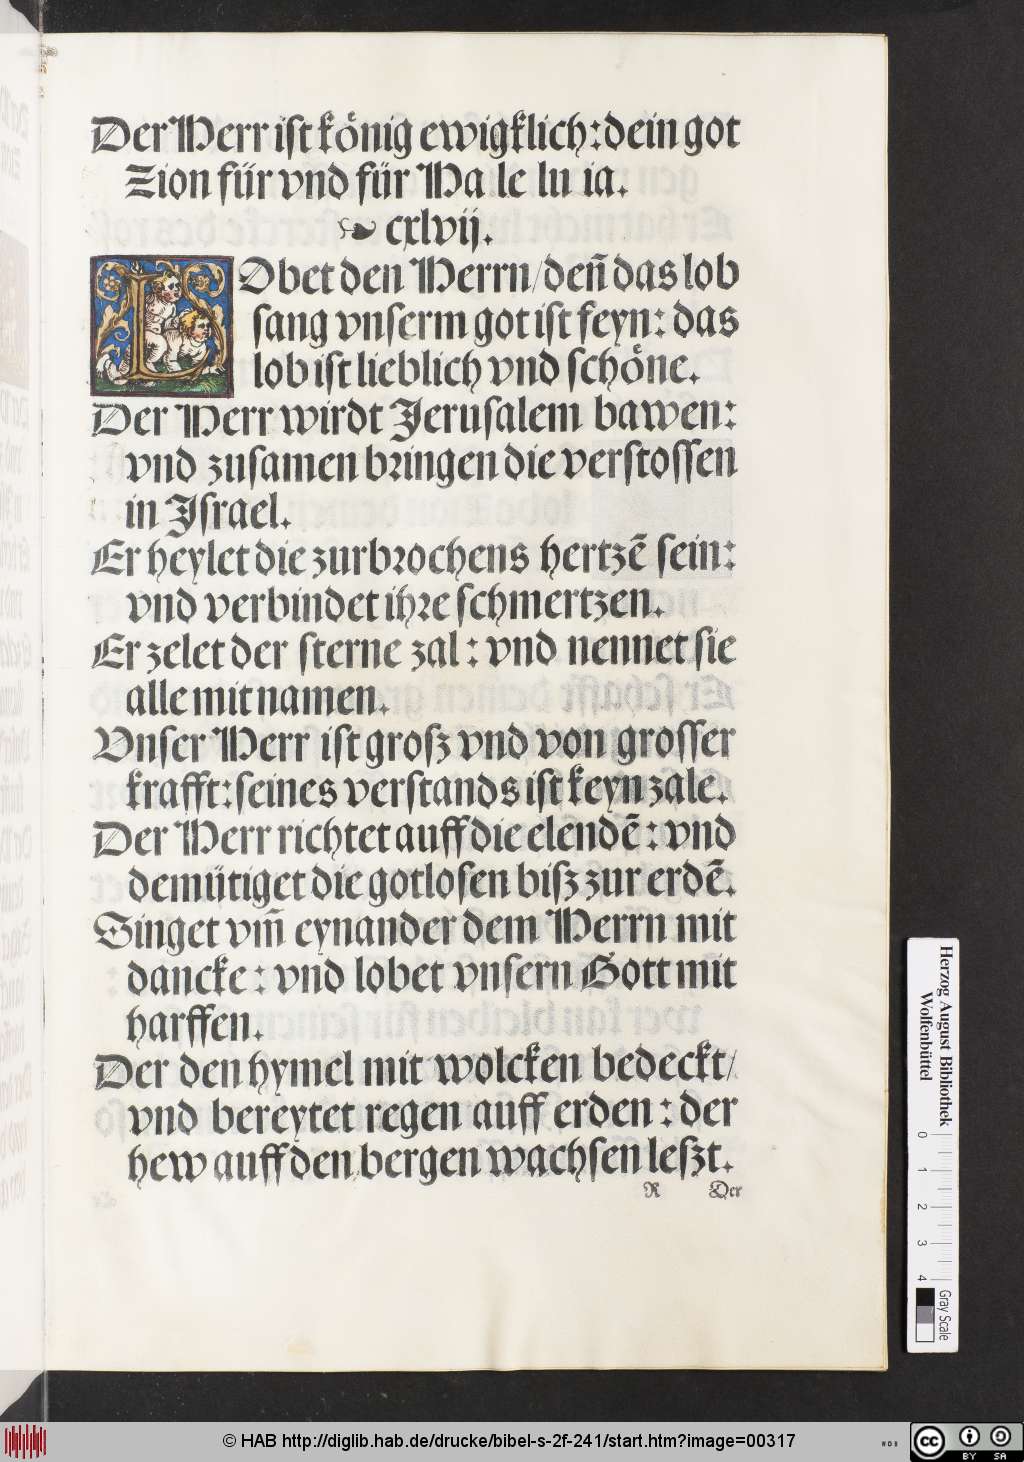 Der Herr ist könig ewigklich: dein got
Zion für vnd für Ha le lu ia.
cxlvij.
LObet den Herrn/ deñ das lob
sang vnserm got ist feyn: das
lob ist lieblich vnd schöne.
Der Herr wirdt Jerusalem bawen:
vnd zusamen bringen die verstossen
in Jsrael.
Er heylet die zurbrochens hertzē sein:
vnd verbindet ihre schmertzen.
Er zelet der sterne zal: vnd nennet sie
alle mit namen.
Vnser Herr ist grosz vnd von grosser
krafft: seines verstands ist keyn zale.
Der Herr richtet auff die elendē: vnd
demütiget die gotlosen bisz zur erdē.
Singet vm̄ eynander dem Herrn mit
dancke: vnd lobet vnsern Gott mit
harffen.
Der den hymel mit wolcken bedeckt/
vnd bereytet regen auff erden: der
hew auff den bergen wachsen leszt.
R Der
Herzog August Bibliothek
Wolfenbüttel
0 1 2 3 4
Gray Scale
© HAB http://diglib.hab.de/drucke/bibel-s-2f-241/start.htm?image=00317
WDB
cc BY SA